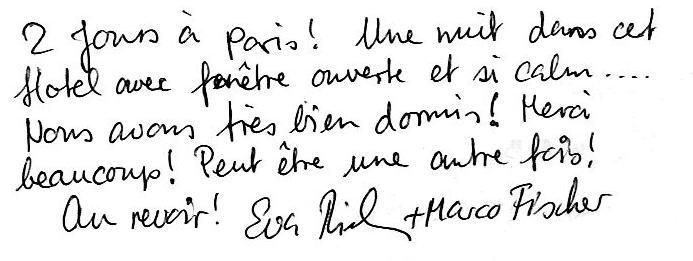 2 Jours à Paris! Une nuit dans cet
Hotel avec fenêtre ouverte et si calm....
Nous avons très bien dormis! Merci
beaucoup! Peut être une autre fois!
Au revoir! Eva +Marco Fischer